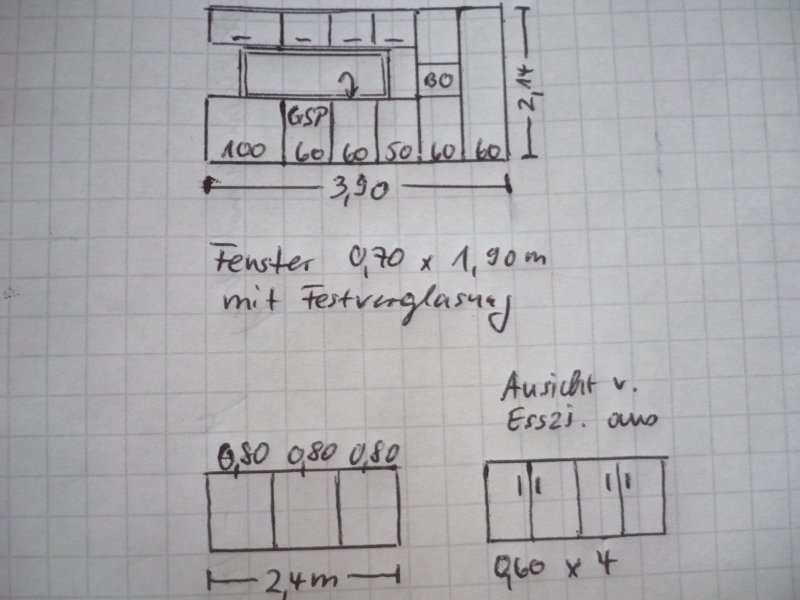 BO
2,14
GSP
100 60 60 50 60 60
3,90
Fenster 0,70 x 1,90 m
mit Festverglasung
Ansicht v.
Esszi. aus
0,80 0,80 0,80
2,4 m
0,60 x 4